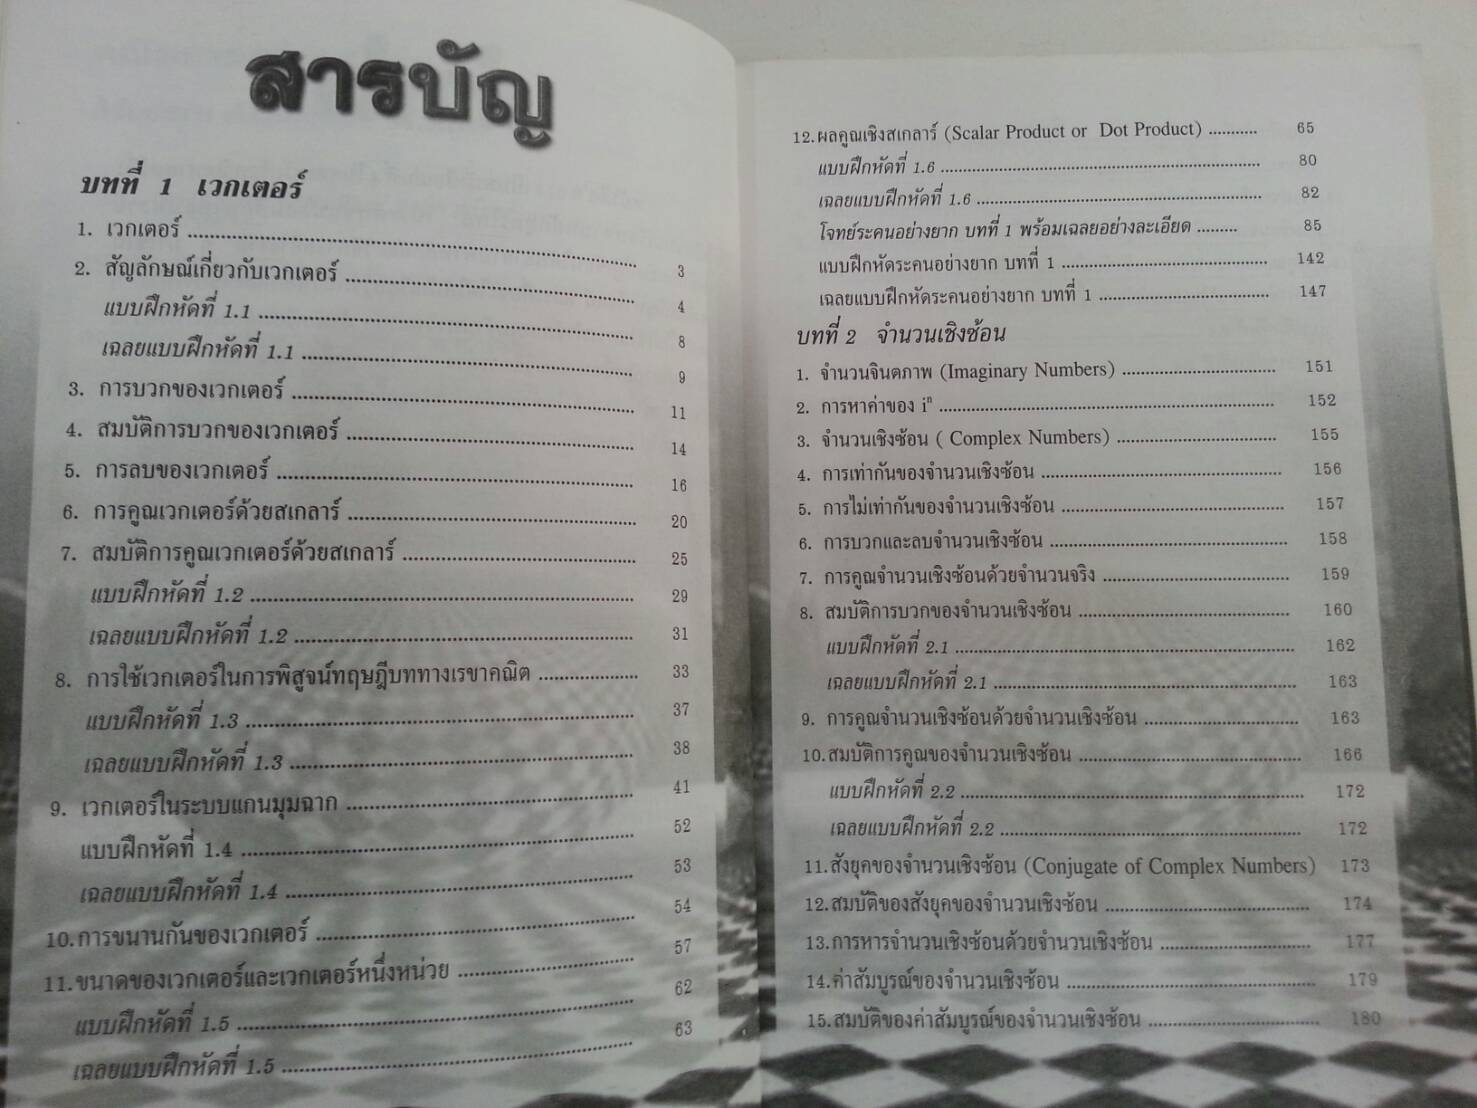 สารบัญ
บทที่ 1 เวกเตอร์
1. เวกเตอร์ ........ 3
2. สัญลักษณ์เกี่ยวกับเวกเตอร์ ........ 4
แบบฝึกหัดที่ 1.1 ........ 8
เฉลยแบบฝึกหัดที่ 1.1 ........ 9
3. การบวกของเวกเตอร์ ........ 11
4. สมบัติการบวกของเวกเตอร์ ........ 14
5. การลบของเวกเตอร์ ........ 16
6. การคูณเวกเตอร์ด้วยสเกลาร์ ........ 20
7. สมบัติการคูณเวกเตอร์ด้วยสเกลาร์ ........ 25
แบบฝึกหัดที่ 1.2 ........ 29
เฉลยแบบฝึกหัดที่ 1.2 ........ 31
8. การใช้เวกเตอร์ในการพิสูจน์ทฤษฎีบททางเรขาคณิต ........ 33
แบบฝึกหัดที่ 1.3 ........ 37
เฉลยแบบฝึกหัดที่ 1.3 ........ 38
9. เวกเตอร์ในระบบแกนมุมฉาก ........ 41
แบบฝึกหัดที่ 1.4 ........ 52
เฉลยแบบฝึกหัดที่ 1.4 ........ 53
10. การขนานกันของเวกเตอร์ ........ 54
11. ขนาดของเวกเตอร์และเวกเตอร์หนึ่งหน่วย ........ 57
แบบฝึกหัดที่ 1.5 ........ 62
เฉลยแบบฝึกหัดที่ 1.5 ........ 63
12. ผลคูณเชิงสเกลาร์ (Scalar Product or Dot Product) ........ 65
แบบฝึกหัดที่ 1.6 ........ 80
เฉลยแบบฝึกหัดที่ 1.6 ........ 82
โจทย์ระคนอย่างยาก บทที่ 1 พร้อมเฉลยอย่างละเอียด ........ 85
แบบฝึกหัดระคนอย่างยาก บทที่ 1 ........ 142
เฉลยแบบฝึกหัดระคนอย่างยาก บทที่ 1 ........ 147
บทที่ 2 จำนวนเชิงซ้อน
1. จำนวนจินตภาพ (Imaginary Numbers) ........ 151
2. การหาค่าของ iⁿ ........ 152
3. จำนวนเชิงซ้อน ( Complex Numbers) ........ 155
4. การเท่ากันของจำนวนเชิงซ้อน ........ 156
5. การไม่เท่ากันของจำนวนเชิงซ้อน ........ 157
6. การบวกและลบจำนวนเชิงซ้อน ........ 158
7. การคูณจำนวนเชิงซ้อนด้วยจำนวนจริง ........ 159
8. สมบัติการบวกของจำนวนเชิงซ้อน ........ 160
แบบฝึกหัดที่ 2.1 ........ 162
เฉลยแบบฝึกหัดที่ 2.1 ........ 163
9. การคูณจำนวนเชิงซ้อนด้วยจำนวนเชิงซ้อน ........ 163
10. สมบัติการคูณของจำนวนเชิงซ้อน ........ 166
แบบฝึกหัดที่ 2.2 ........ 172
เฉลยแบบฝึกหัดที่ 2.2 ........ 172
11. สังยุคของจำนวนเชิงซ้อน (Conjugate of Complex Numbers) 173
12. สมบัติของสังยุคของจำนวนเชิงซ้อน ........ 174
13. การหารจำนวนเชิงซ้อนด้วยจำนวนเชิงซ้อน ........ 177
14. ค่าสัมบูรณ์ของจำนวนเชิงซ้อน ........ 179
15. สมบัติของค่าสัมบูรณ์ของจำนวนเชิงซ้อน ........ 180